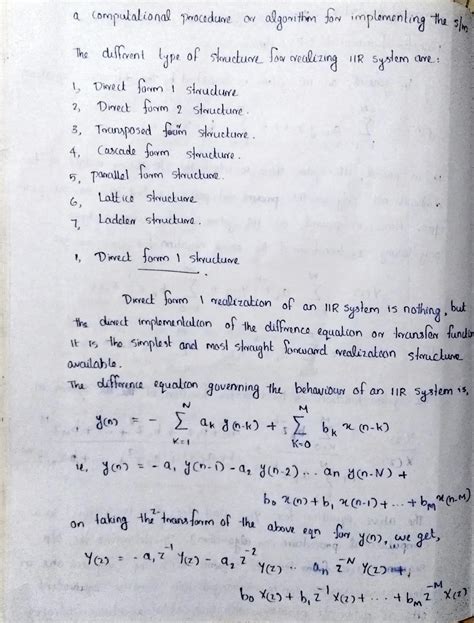 a computational procedure or algorithm for implementing the s/m
The different type of structure for realizing IIR system are:
1, Direct form 1 structure
2, Direct form 2 structure.
3, Transposed form structure.
4, Cascade form structure.
5, parallel form structure.
6, Lattice structure
7, Ladder structure.
1, Direct form 1 structure
Direct form 1 realization of an IIR system is nothing, but
the direct implementation of the diffrence equation or transfer function
It is the simplest and most straight forward realization structure
available.
The difference equation governing the behaviour of an IIR system is,
y(n) = - N Σ K=1 ak y(n-k) + M Σ K=0 bk x(n-k)
ie, y(n) = -a1 y(n-1) - a2 y(n-2)... an y(n-N) +
b0 x(n) + b1 x(n-1) + ... + bM x(n-M)
on taking the z-transform of the above eqn for y(n), we get,
Y(z) = -a1 z^-1 Y(z) - a2 z^-2 Y(z).. an z^-N Y(z) +
b0 X(z) + b1 z^-1 X(z) + ... + bM z^-M X(z)